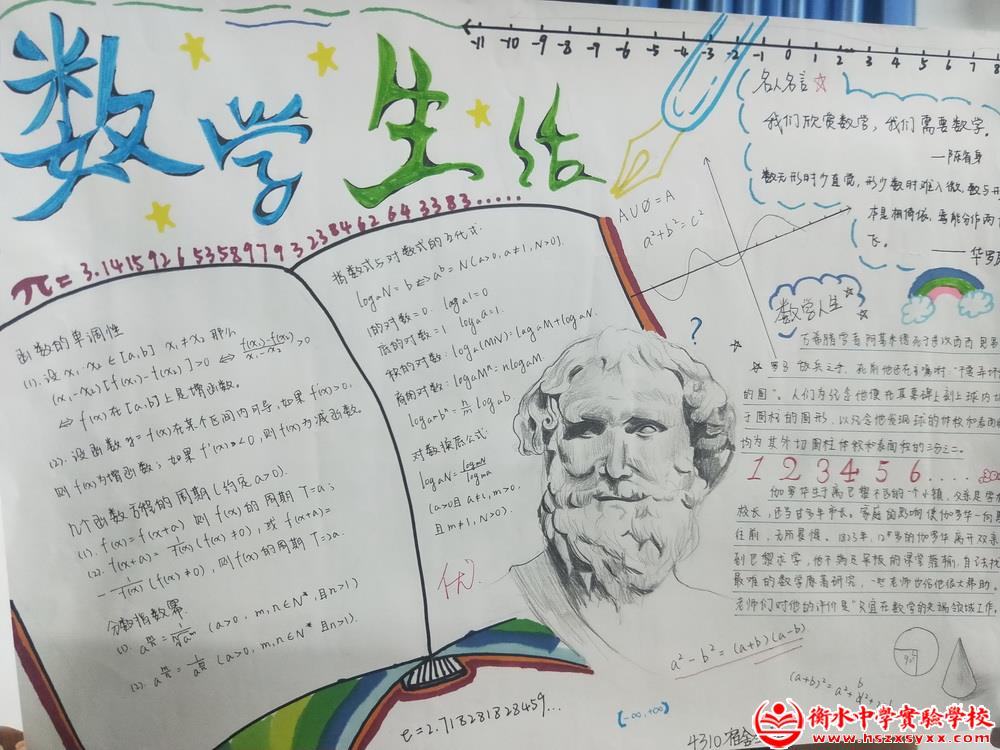 数学生活
-11 -10 -9 -8 -7 -6 -5 -4 -3 -2 -1 0 1 2 3 4 5 6 7 8
名人名言
我们欣赏数学，我们需要数学。
——陈省身
数无形时少直觉，形少数时难入微，数与形
本是相倚依，焉能分作两
飞。
——华罗
π=3.14159265358979323846264 3383.....
函数的单调性
(1). 设 x₁·x₂∈[a,b] x₁≠x₂ 那么
(x₁-x₂)[f(x₁)-f(x₂)]>0 ⇔ f(x₁)-f(x₂)/x₁-x₂ >0
⇔ f(x)在[a,b]上是增函数。
(2). 设函数y=f(x)在某个区间内可导，如果f'(x)>0,
则f(x)为增函数；如果f'(x)<0,则f(x)为减函数。
几个函数方程的周期(约定a>0).
(1). f(x)=f(x+a) 则f(x)的周期T=a；
(2). f(x+a)=1/f(x) (f(x)≠0), 或 f(x+a)=
-1/f(x) (f(x)≠0), 则f(x)的周期T=2a.
分数指数幂
(1). (a>0, m,n∈N*,且n>1)
(2). (a>0, m,n∈N* 且n>1).
指数式与对数式的互化式.
logaN=b⇔a^b=N(a>0,a≠1,N>0).
的对数=0. loga1=0
底的对数=1. logaa=1.
积的对数: loga(MN)=logaM+logaN.
幂的对数: logaMⁿ=nlogaM.
对数换底公式:
logaN=logmN/logma
(a>0且a≠1,m>0.
且m≠1,N>0).
优
A∪Ø=A
a²+b²=c²
?
数学人生
古希腊学者阿基米德死于进攻西西
的图"。人们为纪念他便在其墓碑上刻上球内切
于圆柱的图形，以纪念他发现球的体积和表面
均为其外切圆柱体积和表面积的三分之二。
1 2 3 4 5 6 ....
伽罗华生于离巴黎不远的一个小镇，父亲是学
校长，还当过多年市长。家庭的影响使伽罗华一向勇
往直前，无所畏惧。1823年，12岁的伽罗华离开双亲
到巴黎求学，他不满足呆板的课堂灌输，自己去找
最难的数学原著研究，一些老师也给他很大帮助。
老师们对他的评价是"只宜在数学的尖端领域工作
a²-b²=(a+b)(a-b)
e=2.718281828459...
(-∞,+∞)
4310宿舍
衡水中学实验学校
www.hszxsyxx.com